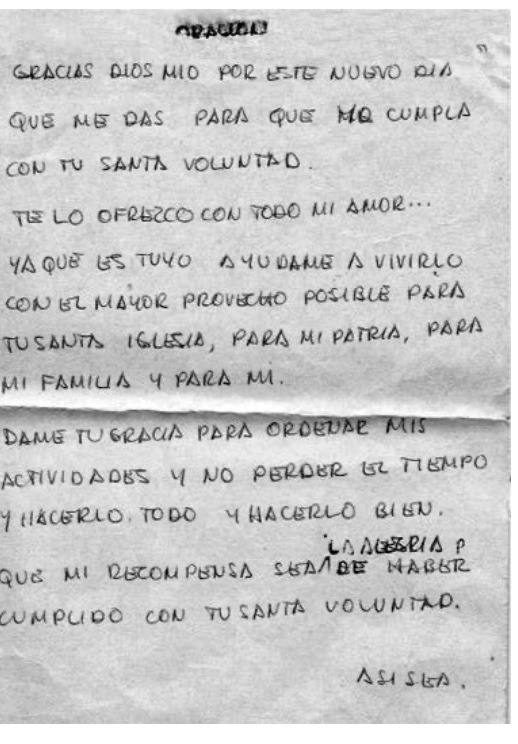 ORACION
GRACIAS DIOS MIO POR ESTE NUEVO DIA
QUE ME DAS PARA QUE CUMPLA
CON TU SANTA VOLUNTAD.
TE LO OFREZCO CON TODO MI AMOR...
YA QUE ES TUYO AYUDAME A VIVIRLO
CON EL MAYOR PROVECHO POSIBLE PARA
TU SANTA IGLESIA, PARA MI PATRIA, PARA
MI FAMILIA Y PARA MI.
DAME TU GRACIA PARA ORDENAR MIS
ACTIVIDADES Y NO PERDER EL TIEMPO
Y HACERLO TODO Y HACERLO BIEN.
LA ALEGRIA
QUE MI RECOMPENSA SEA DE HABER
CUMPLIDO CON TU SANTA VOLUNTAD.
ASI SEA.